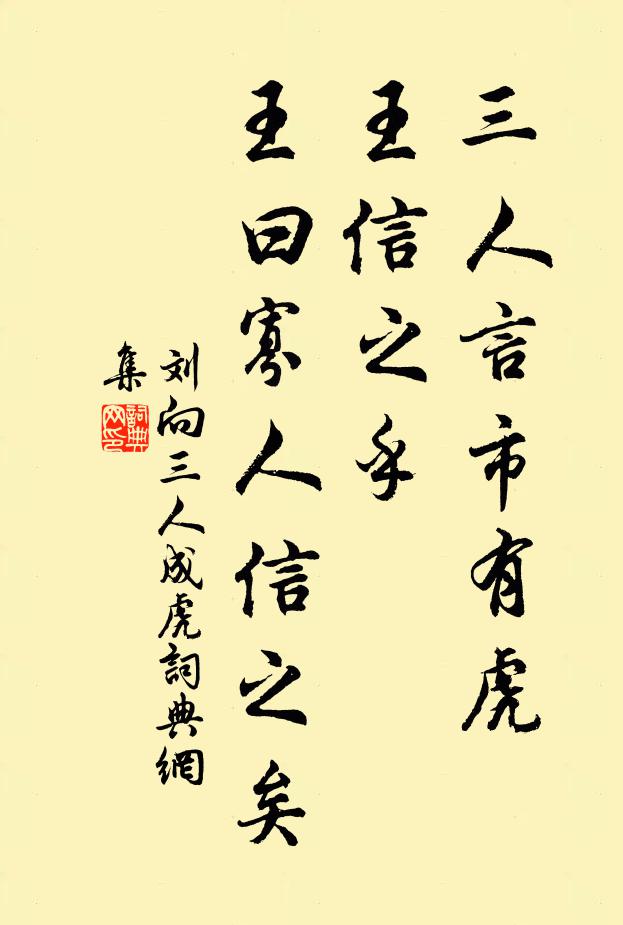 三人言市有虎
王信之乎
王曰寡人信之矣
刘向三人成虎詞典網
集
詞典
网印